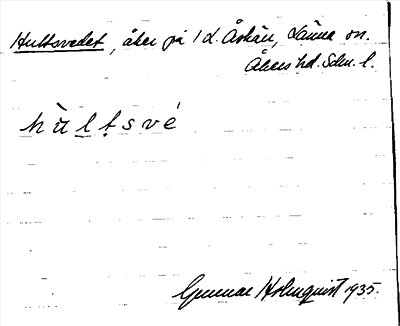 Hultsvedet, åker på 1 d. Åskäu, Länna sn.
Åkers hd. Sdm. l.
hùḷṭsvé
Gunnar Holmquist 1935.